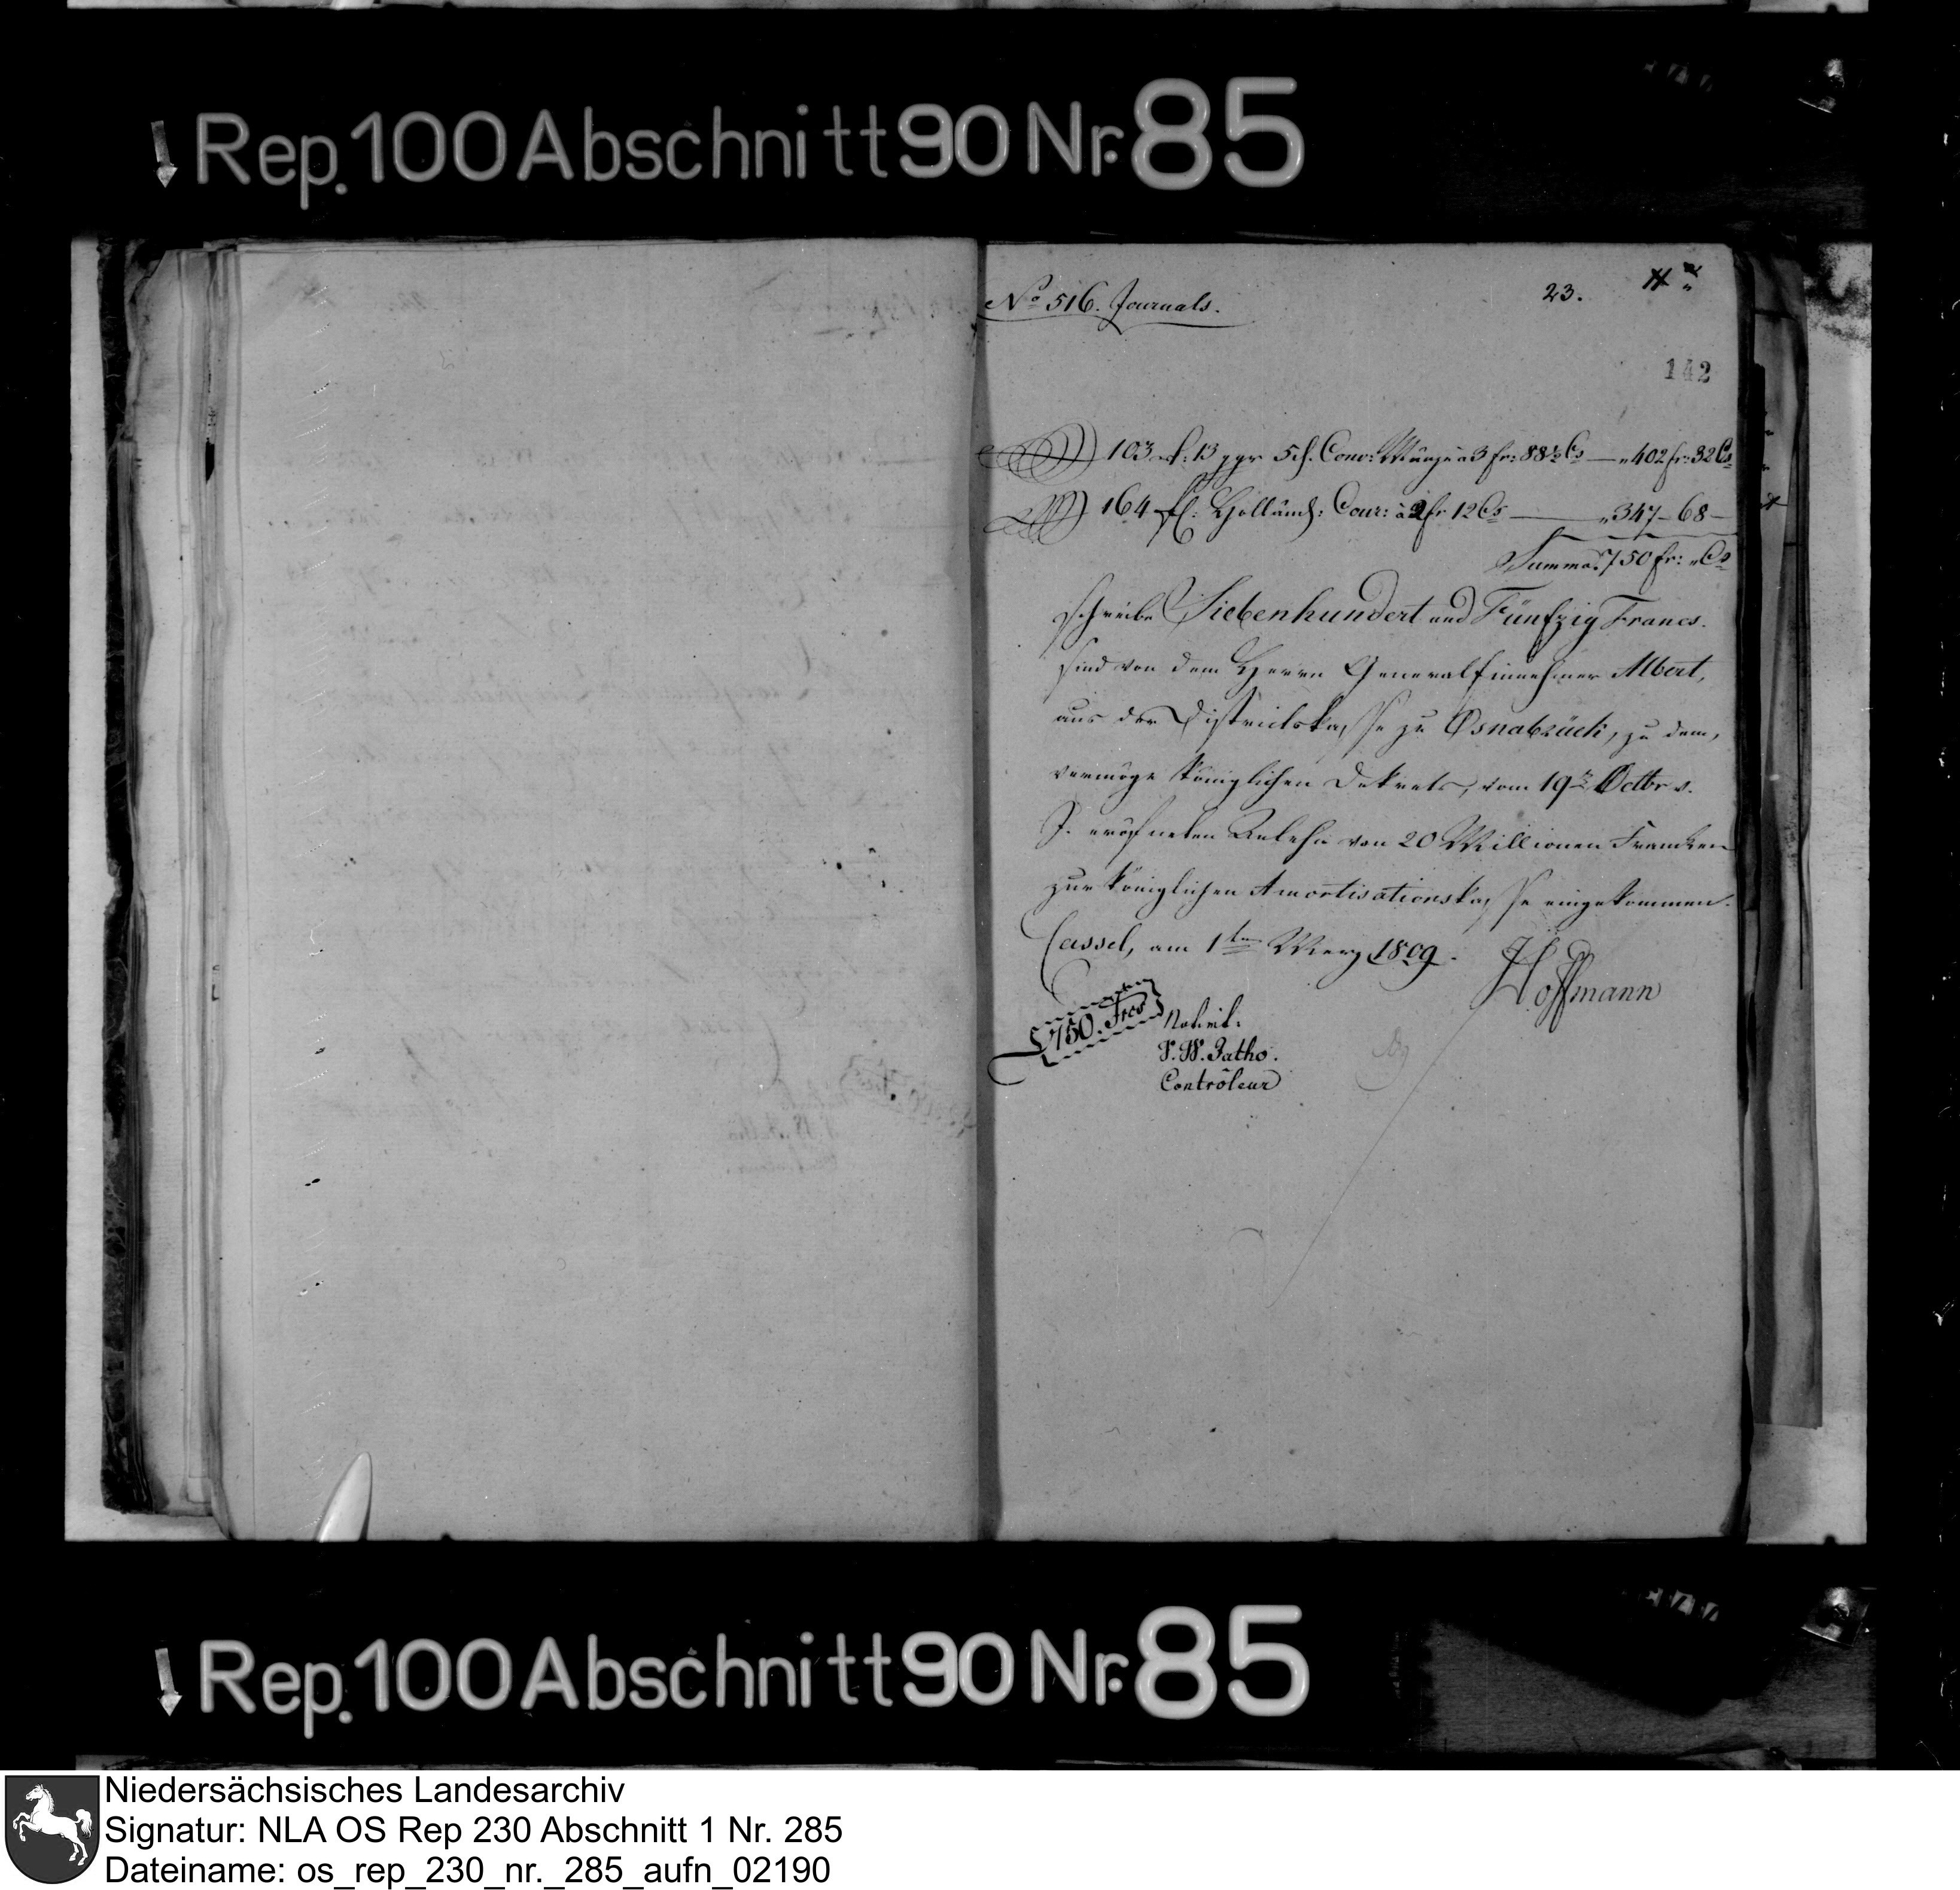 Rep. 100 Abschnitt 90 Nr. 85
No 516. Journals.
23.
142
103 rl: 13 ggr 5 d. Conv: Münze à 3 fr: 88½ Cs — „ 402 fr: 32 Cs
164 fl: Holländ: Cour: à 2 fr 12 Cs — „ 347 – 68 –
Summa 750 fr: „ Cs
schreibe Siebenhundert und Fünfzig Francs.
sind von dem Herrn Generaleinnehmer Albert,
aus der Districtskasse zu Osnabrück, zu dem,
vermöge Königlichen Dekrets, vom 19ten Octbr v.
J. eröfneten Anlehn von 20 Millionen Franken
zur Königlichen Amortisationskasse eingekommen.
Cassel, am 1ten Merz 1809.
Hoffmann
750. Frcs
Notirt:
Zatho.
Contrôleur
Rep. 100 Abschnitt 90 Nr. 85
Niedersächsisches Landesarchiv
Signatur: NLA OS Rep 230 Abschnitt 1 Nr. 285
Dateiname: os_rep_230_nr._285_aufn_02190